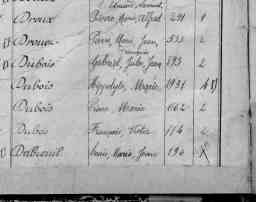 Droux Pierre, Marie, Alfred 291 1
Drouez Pierre, Marie, Jean, 533 2
François
Dubois Gabriel, Jules, Jean 193 2
Dubois Hippolyte, Marie 1931
Dubois Marie 662 2
Dubois François, Victor 114 2
Dubreuil Louis, Marie, Jean 196